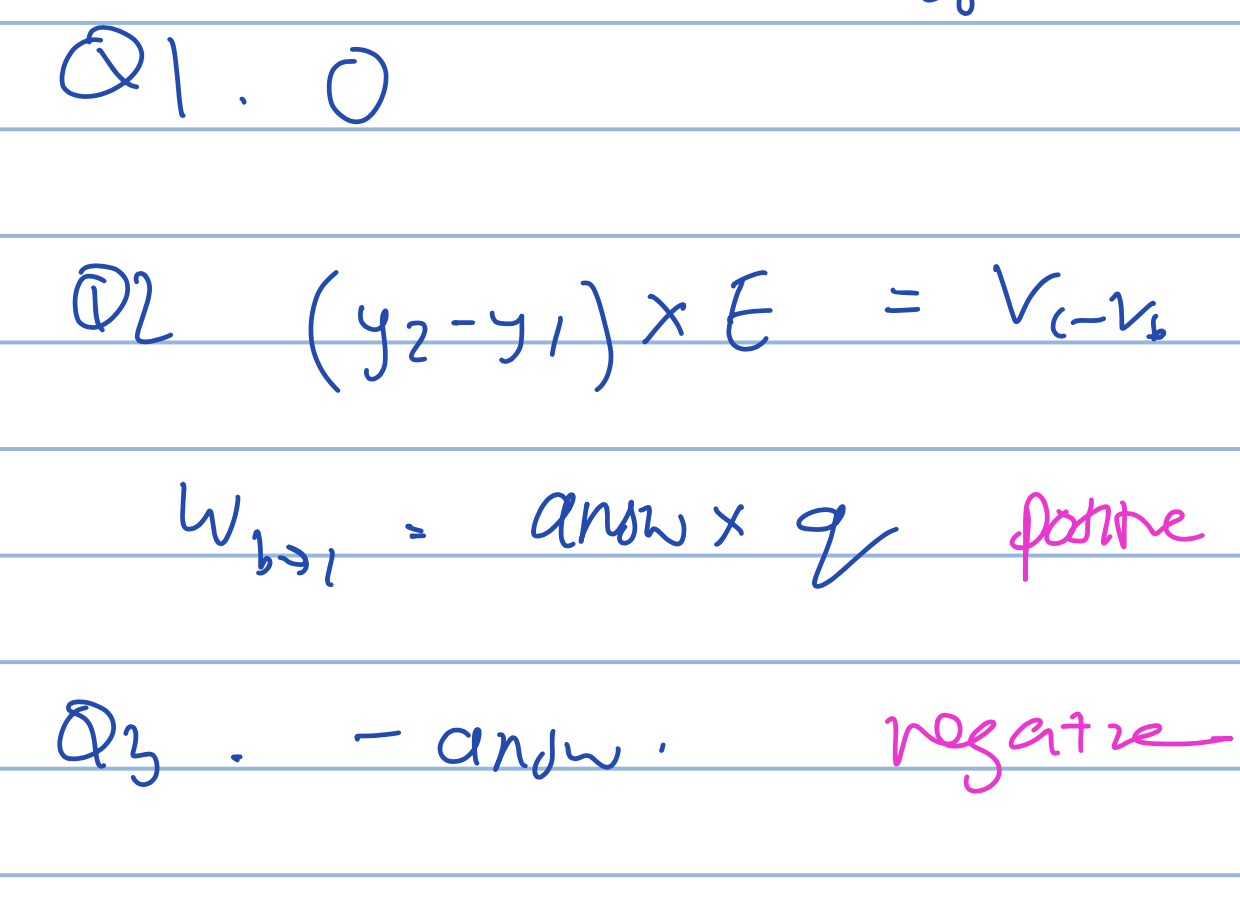 Q1. 0
Q2 (y2-y1) × E = Vc-Vb
Wb→1 = answ × q positive
Q3. - answ. negative